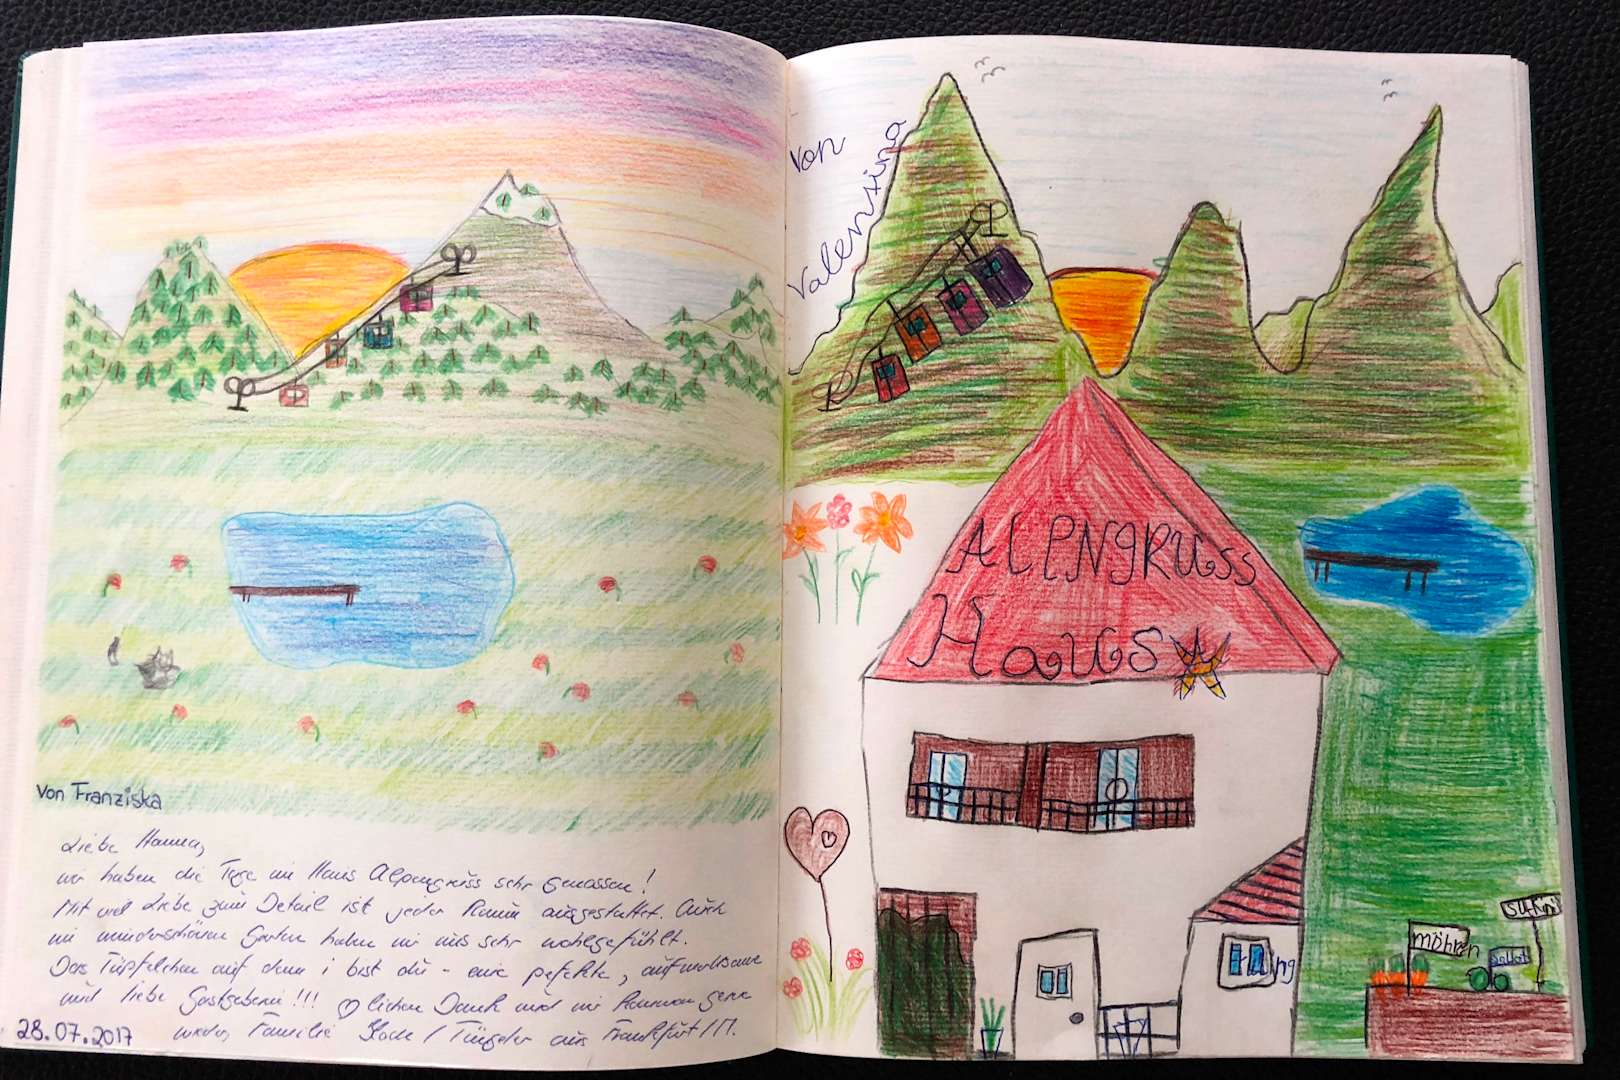 Von Franziska
Liebe Hanna,
wir haben die Tage im Haus Alpengruss sehr genossen!
Mit viel Liebe zum Detail ist jeder Raum ausgestattet. Auch
im wunderschönen Garten haben wir uns sehr wohlgefühlt.
Das Tüpfelchen auf dem i bist du - eine perfekte, aufmerksame
und liebe Gastgeberin!!! ♡lichen Dank und wir kommen gerne
wieder, Familie / Tüngeler aus Frankfurt/M.
28.07.2017
Von
Valensina
ALPNGRUss
Haus
möhren
Sallat